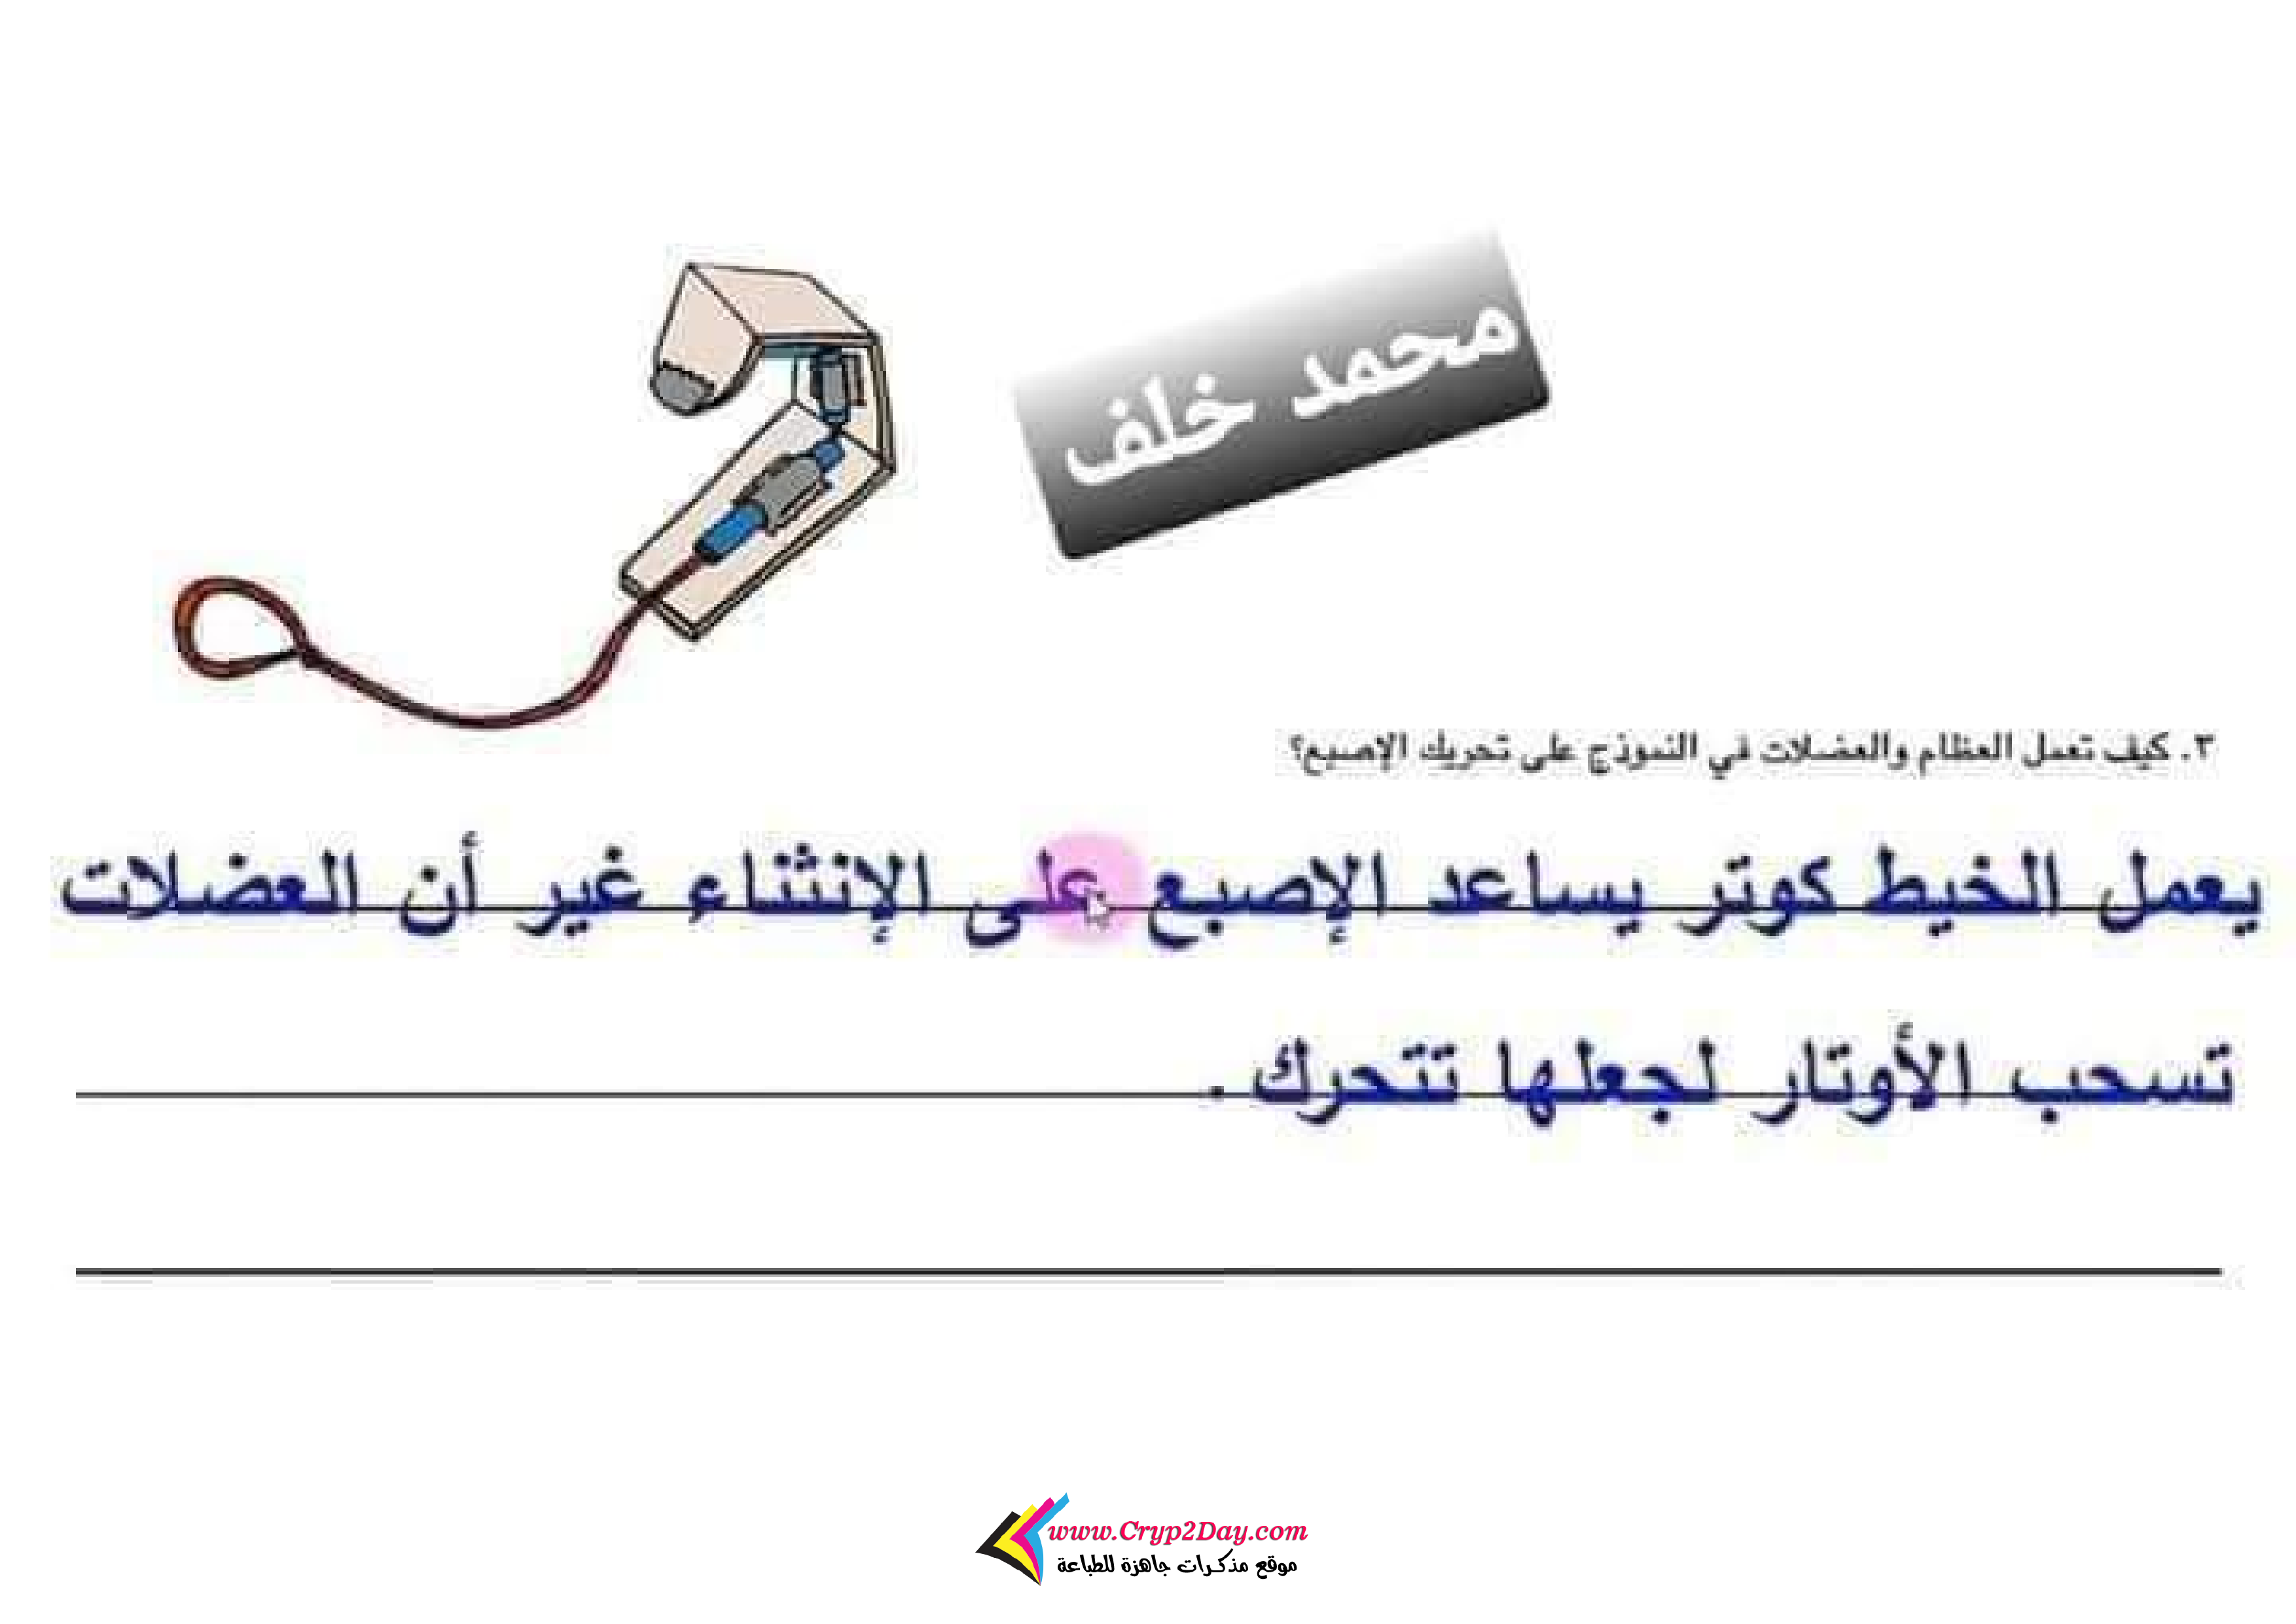 محمد خلف
٣. كيف تعمل العظام والعضلات في النموذج على تحريك الإصبع؟
يعمل الخيط كوتر يساعد الإصبع على الإنثناء غير أن العضلات
تسحب الأوتار لجعلها تتحرك .
www.Cryp2Day.com
موقع مذكرات جاهزة للطباعة